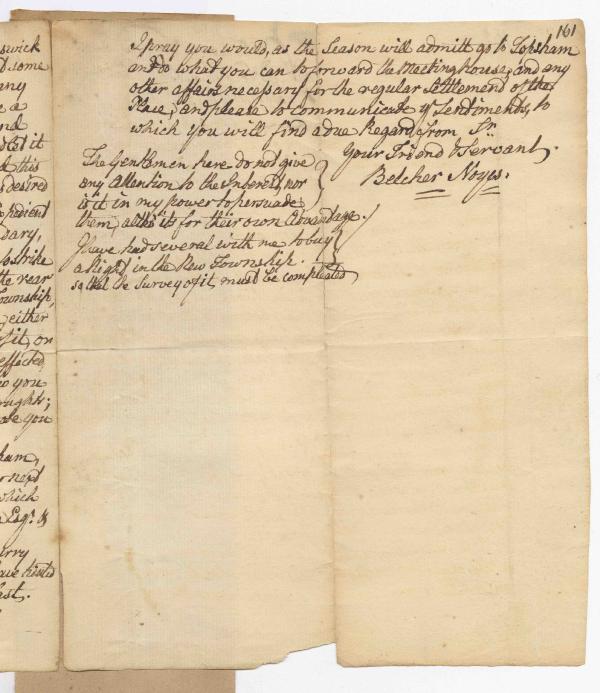 161
I pray you would, as the Season will admitt go to Topsham
and do what you can to forward the Meeting house, and any
other affairs necessary for the regular Settlement of the
Place, and please to communicate yr Sentiments, to
which you will find a due Regard, from Sr.
Your Friend & Servant,
Belcher Noyes.
The Gentlemen here do not give
any Attention to the Interest, nor
is it in my power to persuade
them, altho' its for their own Advantage.
I have had several with me to buy
a Right in the New Township.
so that the Survey of it must be compleated
swick
d some
any
e a
nd
it
this
desired
xpedient
dary,
to strike
the rear
ownship,
either
of it, or
effected
you
oughts;
you
ham,
next
which
Esqr. &
urry
ave hinted
ast.